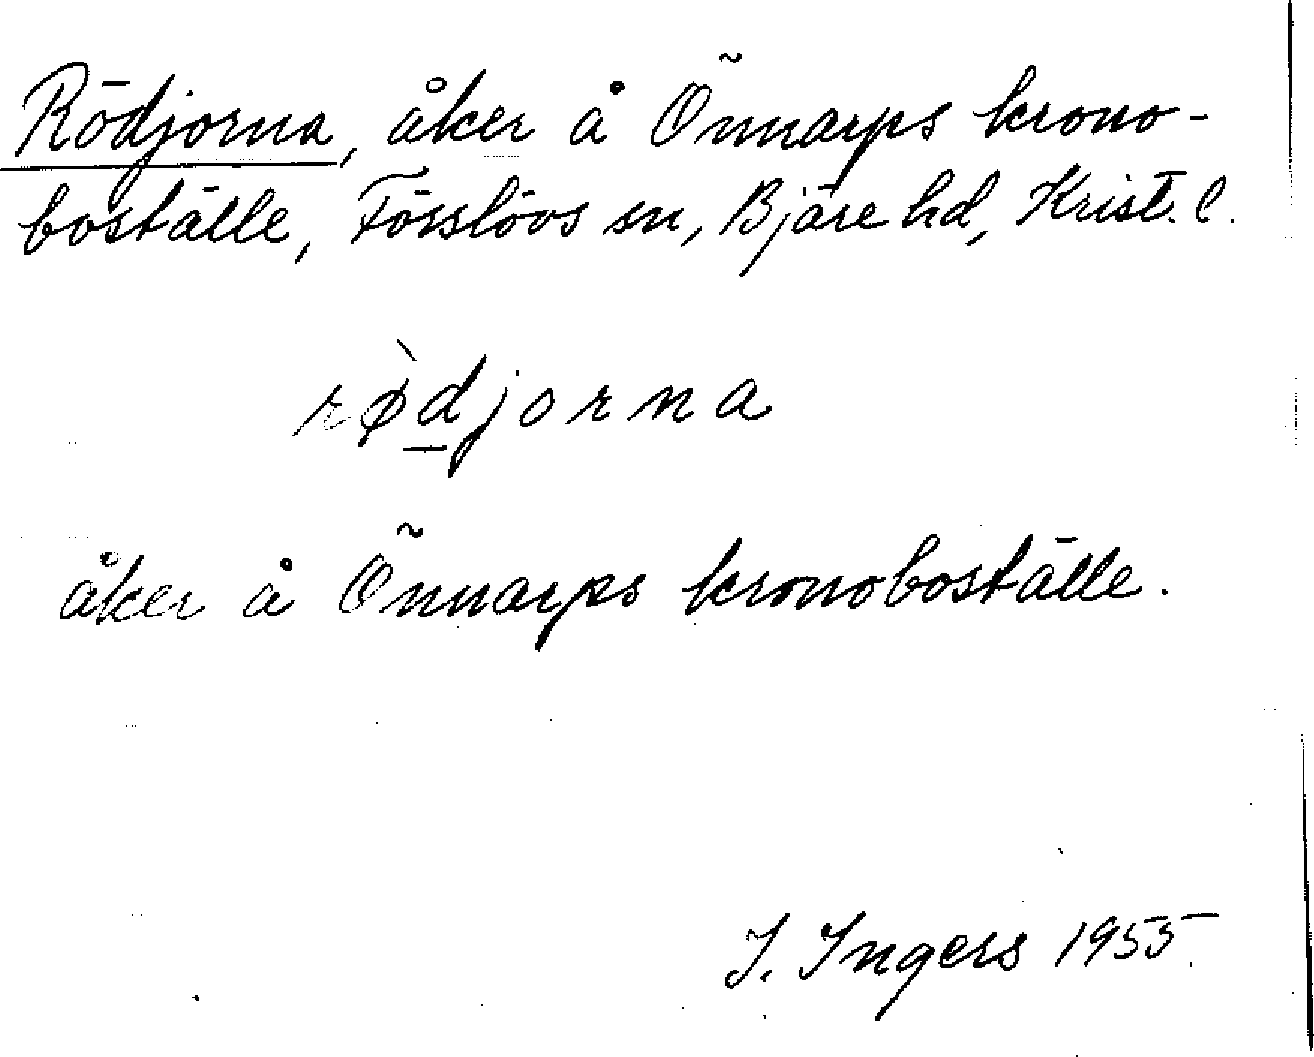 Rödjorna, åker å Önnarps krono-
boställe, Förslövs sn, Bjäre hd, Krist. l.
rø̀djorna
åker å Önnarps kronoboställe.
I. Ingers 1955.